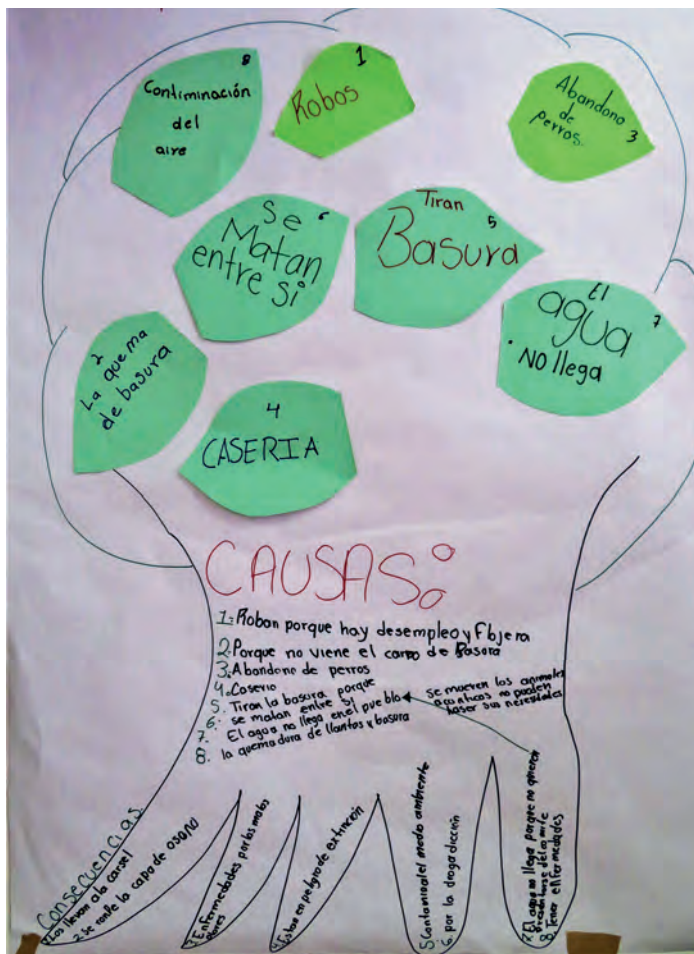 8
Contiminación
del
aire
1
Robos
Abandono
de
perros.
3
Se
6
Matan
entre si
Tiran
5
Basura
El
agua
7
NO llega
2
La quema
de basura
4
CASERIA
CAUSAS:
1: Roban porque hay desempleo y Flojera
2. Porque no viene el carro de Basura
3. Abandono de perros
4. Caseria
5. Tiran la basura porque
6. se matan entre si
7. El agua no llega en el pueblo
8. la quemadura de llantas y basura
se mueren los animales
acuaticos no pueden
haser sus necesidades
Consecuencias.
1. Los llevan a la carsel
2. se rompe la capa de osono
3. Enfermedades por los malos
olores
4. Estan en peligro de extincion
5. Contamina el medio ambiente
6. por la drogadiccion
7. El agua no llega porque no quieren
del comite
8. Tener enfermedades